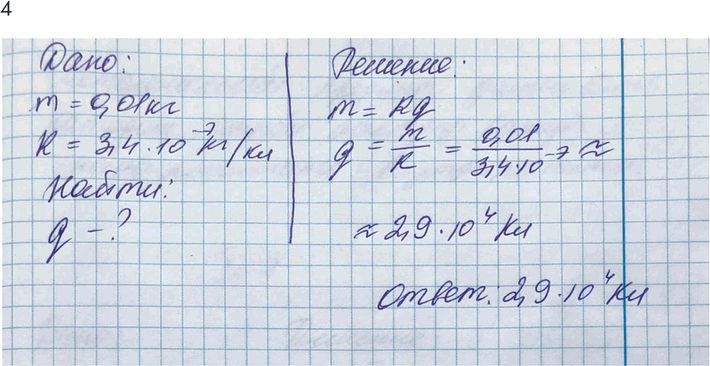 4
Дано:
m = 0,01 кг
k = 3,4 · 10⁻⁷ кг/кл
Найти:
q - ?
Решение:
m = kq
q = m/k = 0,01/3,4·10⁻⁷ ≈
≈ 2,9 · 10⁴ Кл
Ответ: 2,9 · 10⁴ Кл